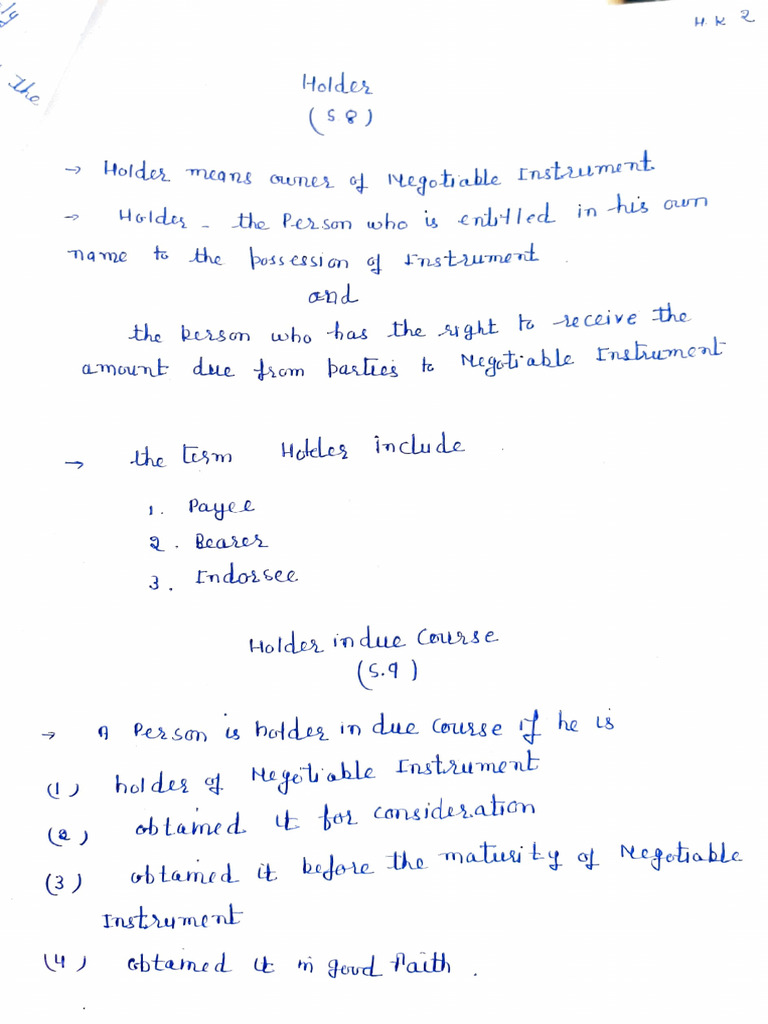 ly
the
H. K 2
Holder
(S 8)
→ Holder means owner of Negotiable Instrument.
→ Holder - the Person who is entitled in his own
name to the possession of Instrument.
and
the person who has the right to receive the
amount due from parties to Negotiable Instrument
→ the term Holder include
1. Payee
2. Bearer
3. Endorsee
Holder in due Course
(S.9)
→ A Person is holder in due course if he is
(1) holder of Negotiable Instrument
(2) obtained it for consideration
(3) obtained it before the maturity of Negotiable
Instrument
(4) obtained it in good Faith.